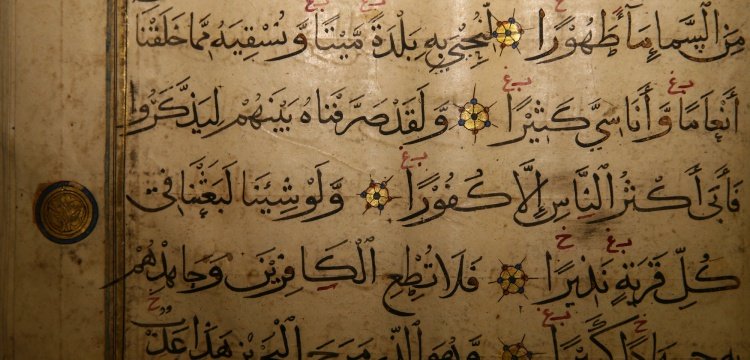 مِنَ السَّمَاءِ مَآءً طَهُورًا لِّنُحْيِيَ بِهِ بَلْدَةً مَّيْتًا وَّنُسْقِيَهُ مِمَّا خَلَقْنَا
أَنْعَامًا وَّأَنَاسِيَّ كَثِيْرًا وَّلَقَدْ صَرَّفْنَاهُ بَيْنَهُمْ لِيَذَّكَّرُوا
فَأَبَىٰ أَكْثَرُ النَّاسِ إِلَّا كُفُورًا وَّلَوْ شِيْنَا لَبَعَثْنَا فِي
كُلِّ قَرْيَةٍ نَّذِيْرًا فَلَا تُطِعِ الْكَافِرِيْنَ وَجَاهِدْهُمْ
بِهِ جِهَادًا كَبِيْرًا وَّهُوَ الَّذِي مَرَجَ الْبَحْرَيْنِ هٰذَا عَذْبٌ